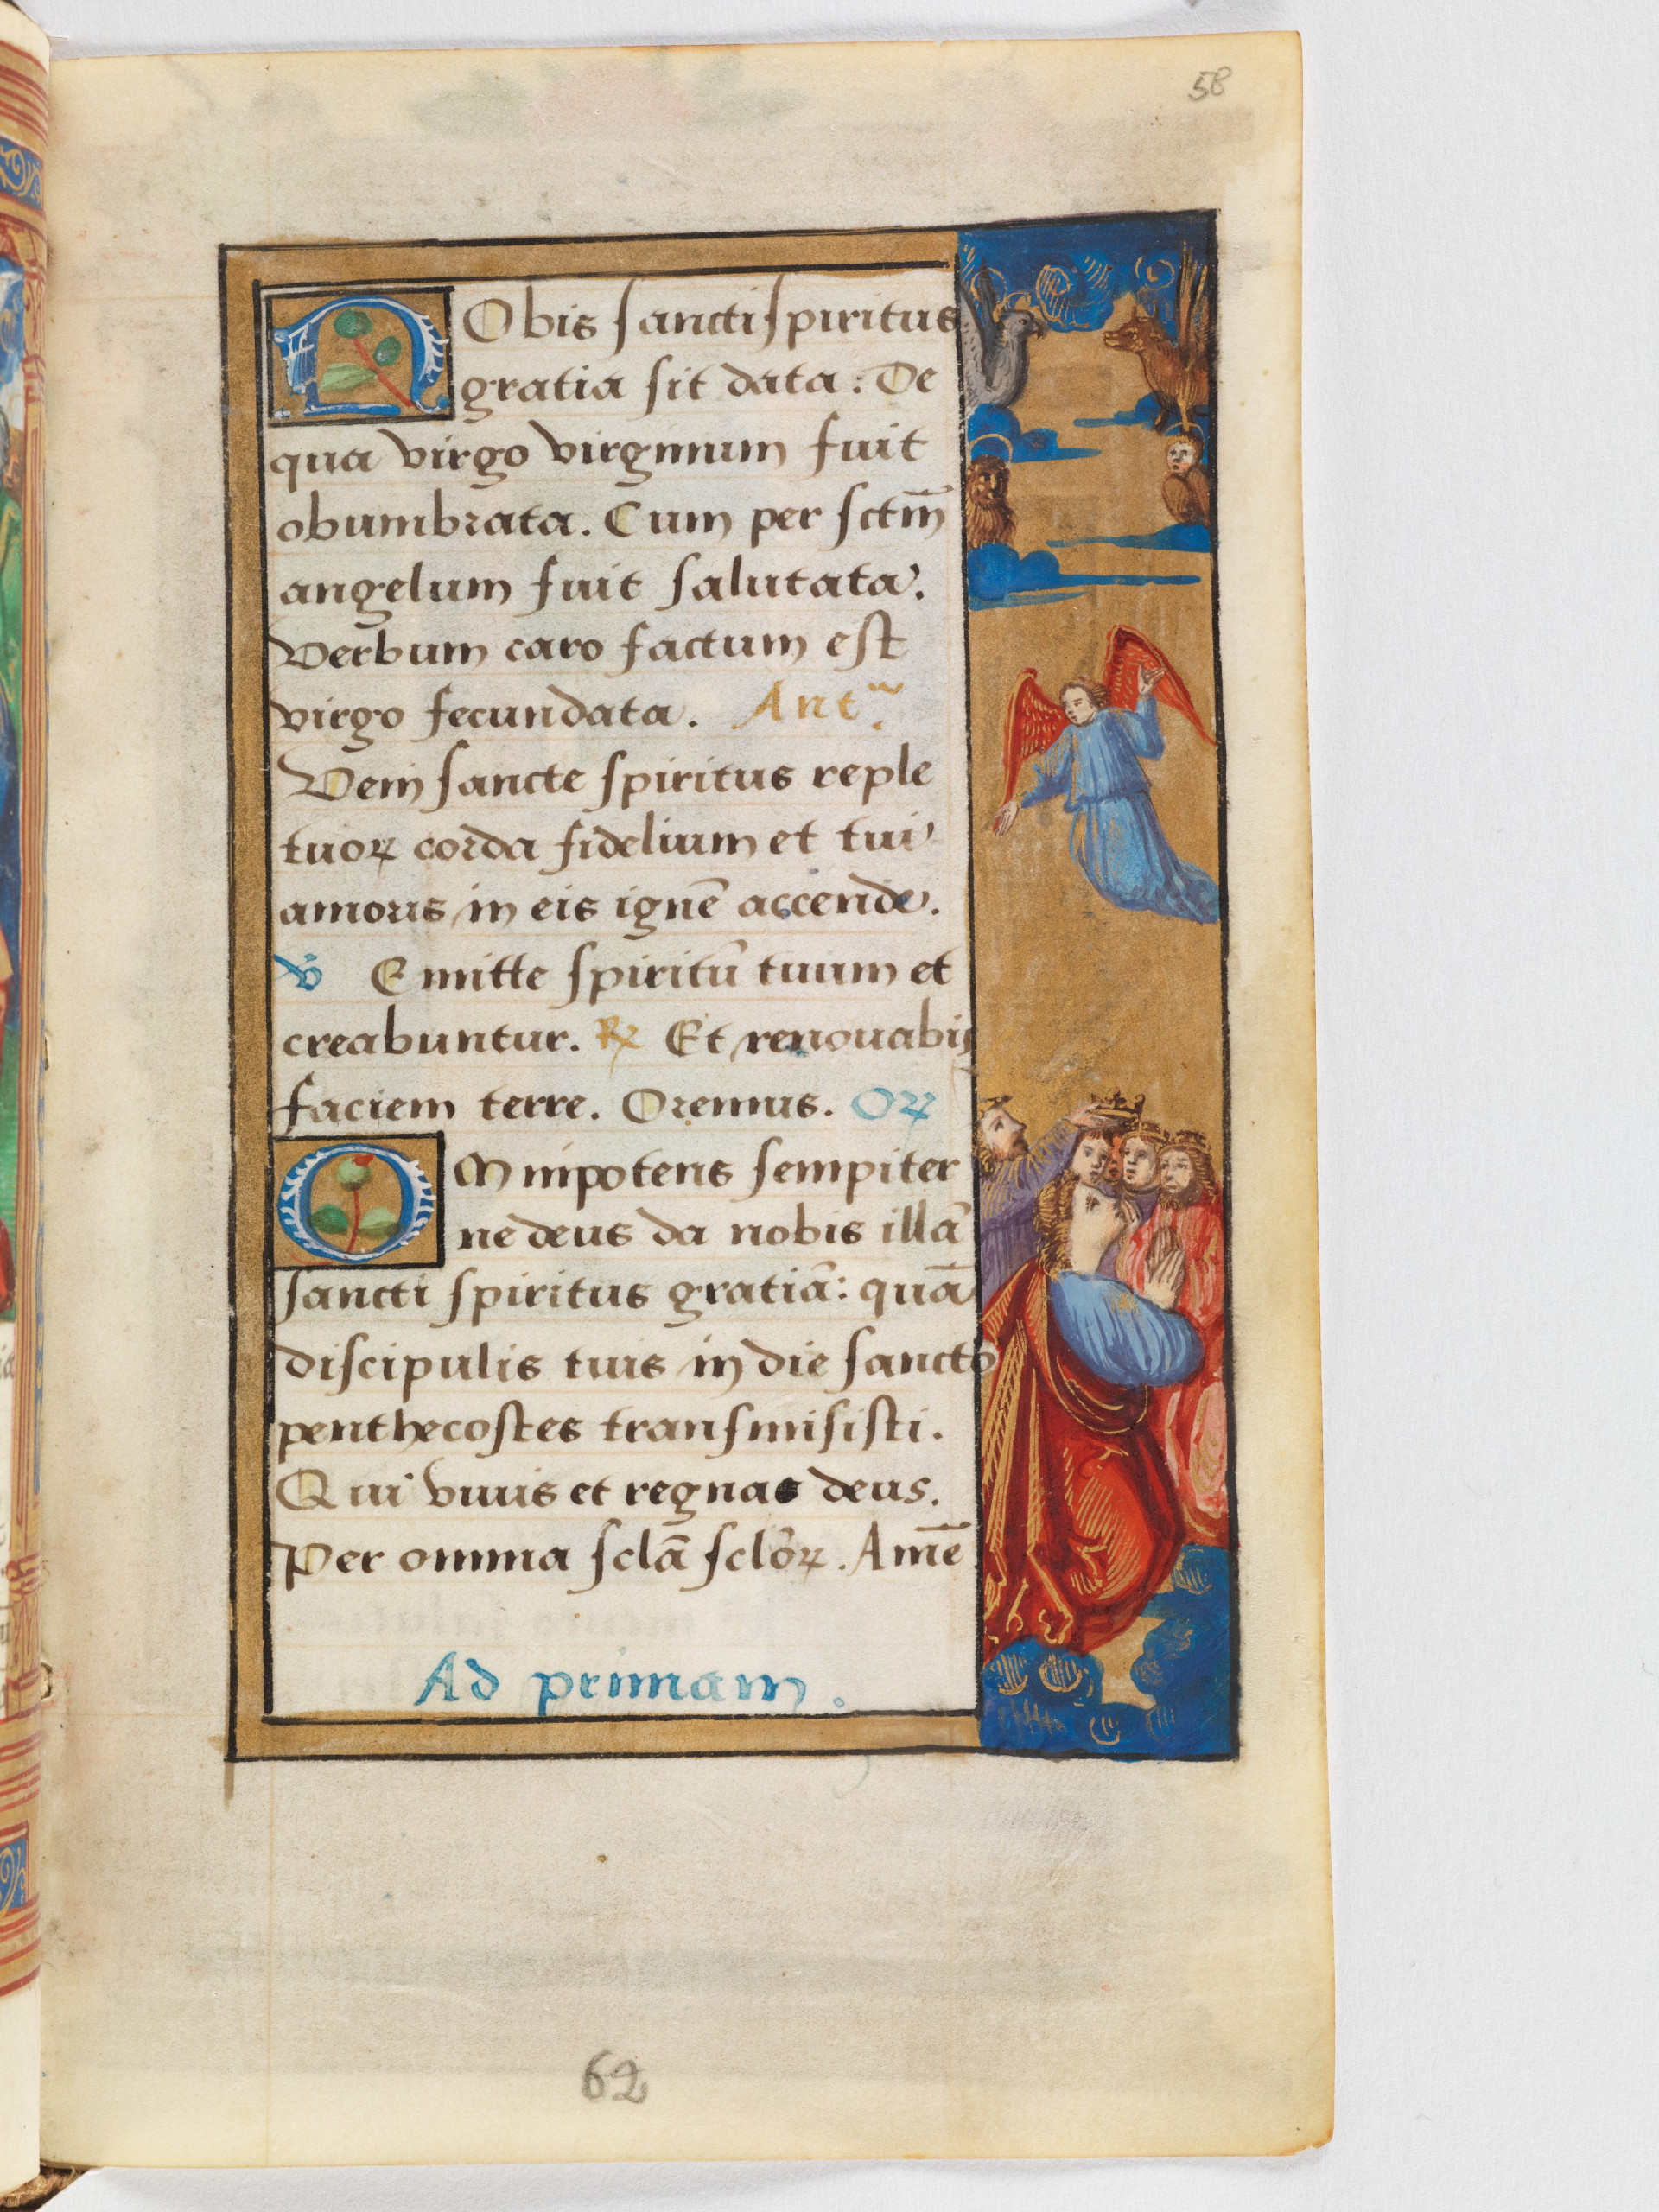 58
NObis sancti spiritus
gratia sit data: De
qua virgo virginum fuit
obumbrata. Cum per sctm̄
angelum fuit salutata.
Verbum caro factum est
virgo fecundata. Ant.
Veni sancte spiritus reple
tuoꝝ corda fidelium et tui
amoris in eis ignē accende.
v̄ Emitte spiritū tuum et
creabuntur. ℞ Et renouabis
faciem terre. Oremus. Oꝝ
OMnipotens sempiter
ne deus da nobis illā
sancti spiritus gratiā: quā
discipulis tuis in die sancto
penthecostes transmisisti.
Qui viuis et regnas deus.
Per omnia sclā sclōꝝ. Amē
Ad primam.
62